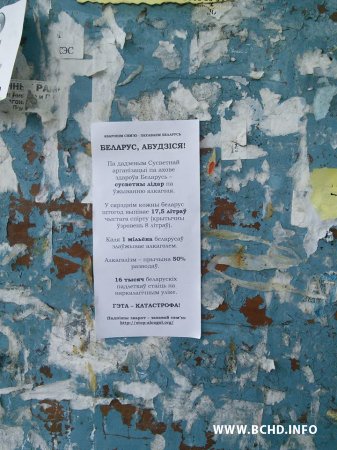 ЭС
АБАРОНІМ СВМ'Ю - ЗБЕРАЖЭМ БЕЛАРУСЬ
БЕЛАРУС, АБУДЗІСЯ!
Па дадзеным Сусветнай
арганізацыі па ахове
здароўя Беларусь –
сусветны лідар па
ўжыванню алкаголя.
У сярэднім кожны беларус
штогод выпівае 17,5 літраў
чыстага спірту (крытычны
ўзровень 8 літраў).
Каля 1 мільёна беларусаў
злоўжывае алкаголем.
Алкагалізм – прычына 50%
разводаў.
16 тысяч беларускіх
падлеткаў стаіць на
наркалагічным уліке.
ГЭТА – КАТАСТРОФА!
http://stop-alcogol.org/
WWW.BCHD.INFO